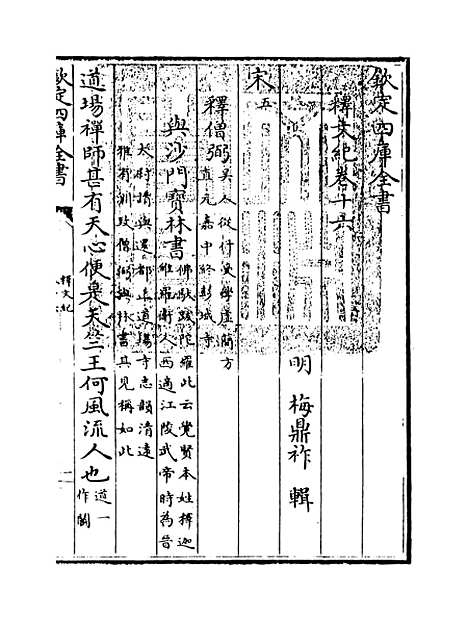 欽定四庫全書
釋文紀卷十六
明 梅鼎祚 輯
宋五
釋僧弼吳人從什受學虛簡方
直元嘉中終彭城寺
與沙門寶林書佛馱跋陀羅此云覺賢本姓釋迦
維羅衛人西適江陵武帝時為晉
太尉請與還都止道場寺志韻清遠
雅有訓致僧弼與林書其見稱如此
道場禪師甚有天心便是天竺王何風流人也道一
作鬬
欽定四庫全書
釋文紀